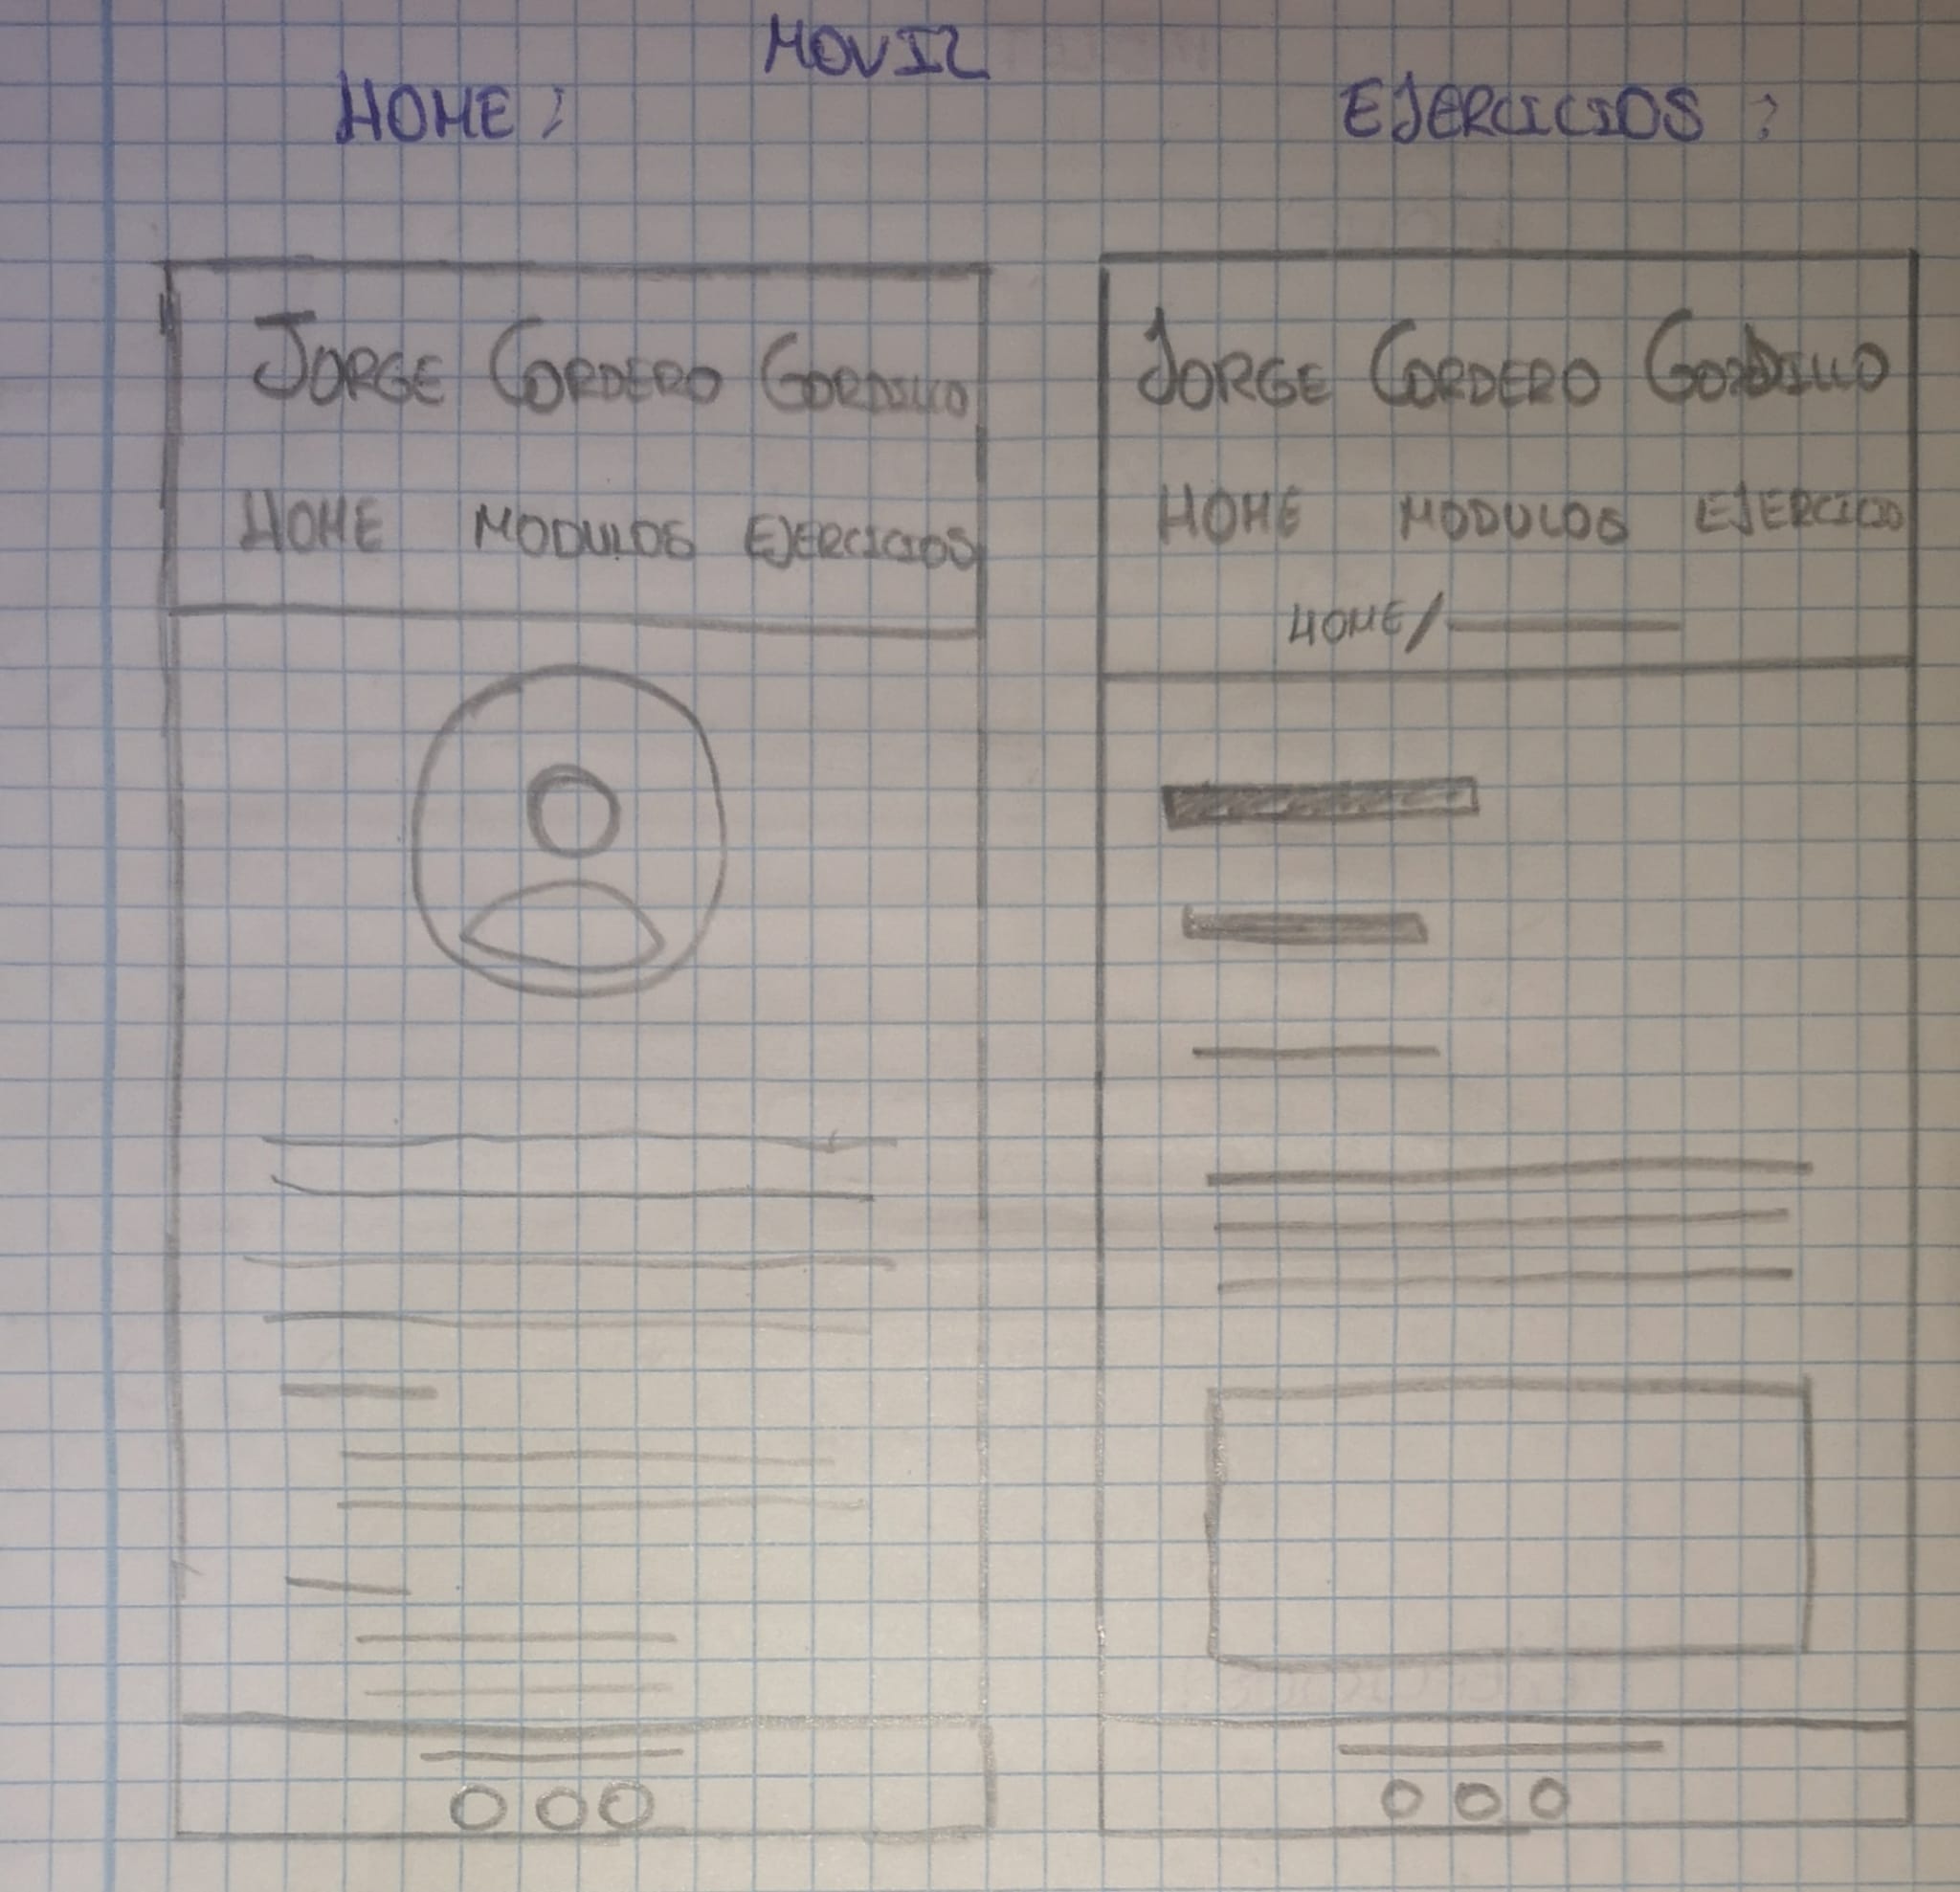 MOVIL
HOME:
JORGE CORDERO GORDILLO
HOME MODULOS EJERCICIOS
EJERCICIOS:
JORGE CORDERO GORDILLO
HOME MODULOS EJERCICIO
HOME/